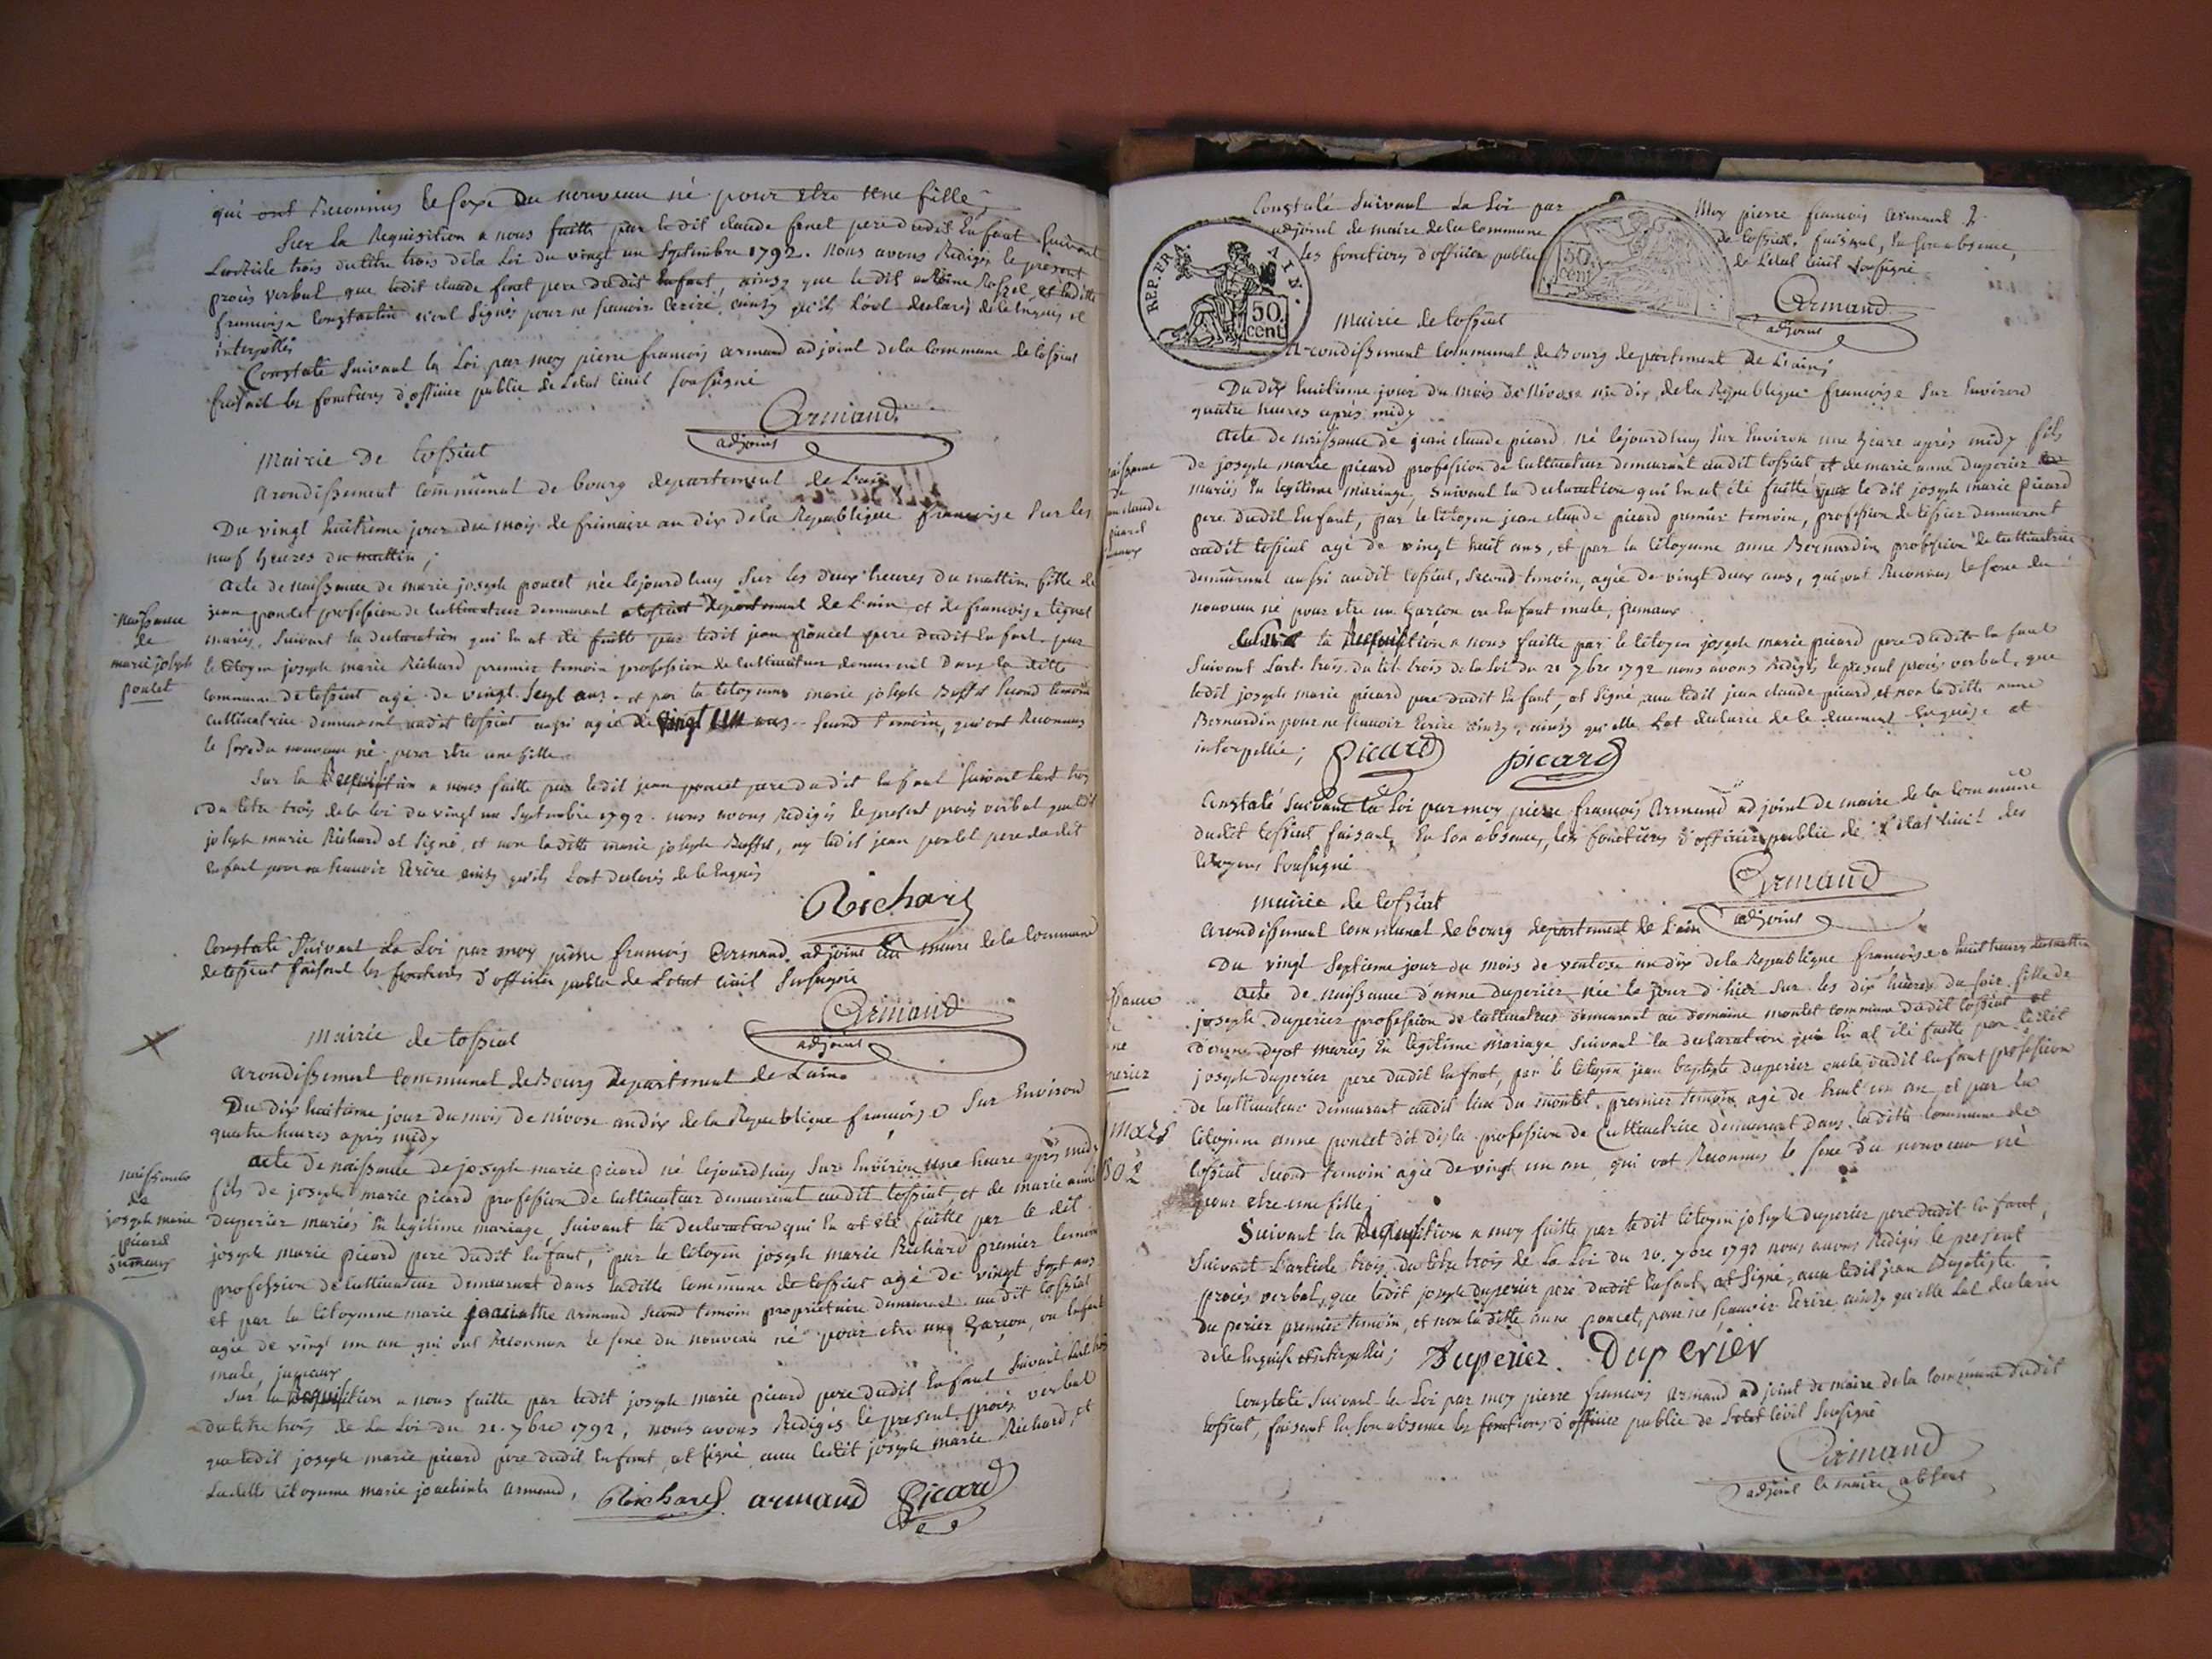 qui ont Reconnus le sexe du nouveau né pour etre une fille,
Sur la Requisition a nous faitte par le dit claude finet pere dudit Enfant suivant
L'article trois du titre trois de la Loi du vingt un Septembre 1792. nous avons Redigés le present
procès verbal que ledit claude finet pere dudit Enfant, ainsy que le dit antoine et ladite
francoise constantin n'ont signés pour ne scavoir Ecrire, ainsy qu'ils l'ont declarés de ce Enquis et
interpellés
Constaté suivant la Loi par moy pierre francois armand adjoint de la commune de tossiat
faisant les fonctions d'officier public de L'etat civil soussigné
Armand
adjoint
Mairie De tossiat
Arondissement communal de bourg departement de L'ain
Du vingt huitieme jour du mois de frimaire an dix de la Republique francoise sur les
neuf heures du mattin ;
Acte de naissance de marie joseph poncet née lejourdhuy sur les deux heures du mattin fille de
jean poncet profession de cultivateur demeurant a tossiat departement de L'ain, et de francoise
mariés, suivant la declaration qui en at été faitte par ledit jean poncet pere dudit Enfant par
le citoyen joseph marie Richard premier temoin profession de cultivateur demeurant Dans la ditte
commune de tossiat agé de vingt sept ans, et par la citoyenne marie joseph Buffet second temoin
cultivatrice demeurant audit tossiat aussi agée de vingt un ans second temoin, qui ont Reconnus
le sexe du nouveau né pour etre une fille
naissance
de
marie joseph
poncet
Sur la Requisition a nous faitte par ledit jean poncet pere dudit Enfant suivant l'art trois
Du titre trois de la loi du vingt un Septembre 1792. nous avons Redigés le present procès verbal que ledit
joseph marie Richard at signé, et non la ditte marie joseph Buffet, ny ledit jean poncet pere dudit
Enfant pour ne scavoir Ecrire ainsy qu'ils L'ont declarés de ce Enquis
Richard
Constaté suivant La Loi par moy pierre francois Armand adjoint du maire de la commune
de tossiat faisant les fonctions d'officier public de L'etat civil soussigné
Armand
adjoint
Mairie de tossiat
Arondissement communal de Bourg Departement de L'ain
Du dix huitieme jour du mois de nivose an dix de la Republique françoise sur Environ
quatre heures après midy
acte de naissance de joseph marie picard né lejourdhuy sur Environ une heure après midy
fils de joseph marie picard profession de cultivateur demeurant audit tossiat, et de marie anne
Duperier mariés En legitime mariage, suivant la declaration qui En at été faitte par le dit
joseph marie picard pere dudit Enfant, par le citoyen joseph marie Richard premier temoin
profession de cultivateur demeurant dans laditte commune de tossiat agé de vingt sept ans
et par la citoyenne marie armand second temoin propriétaire demeurant audit tossiat
agée de vingt un an qui ont Reconnus le sexe du nouveau né pour etre un garçon, ou Enfant
male, jumeaux
naissance
de
joseph marie
picard
jumeaux
Sur la Requisition a nous faitte par ledit joseph marie picard pere dudit Enfant suivant l'art trois
du titre trois de La Loi du 21. 7bre 1792, nous avons Redigés le present procès verbal
que ledit joseph marie picard pere dudit Enfant, at signé avec ledit joseph marie Richard, et
laditte citoyenne marie armand,
Richard armand Picard
Constaté suivant La Loi par Moy pierre francois armand
adjoint de maire de la commune de tossiat, faisant, En son absence,
les fonctions d'officier public de L'etat civil soussigné
Armand
adjoint
REP. FRA.
50
cent
50.
cent
Mairie de tossiat
Arondissement Communal de Bourg departement de L'ain,
Du dix huitieme jour du mois de Nivose an dix, de la Republique francoise sur Environ
quatre heures après midy
Acte de naissance de jean claude picard né lejourdhuy sur Environ une heure après midy fils
de joseph marie picard profession de cultivateur demeurant audit tossiat et de marie anne duperier
mariés En legitime mariage, suivant la declaration qui En at été faitte par le dit joseph marie picard
pere dudit Enfant, par le citoyen jean claude picard premier temoin, profession de demeurant
audit tossiat agé de vingt huit ans, et par la citoyenne anne Bernardin profession de cultivatrice
demeurant aussi audit tossiat, second temoin, agée de vingt deux ans, qui ont Reconnus le sexe du
nouveau né pour etre un garçon ou Enfant male, jumeaux
naissance
de
jean claude
picard
jumeaux
la Requisition a nous faitte par le citoyen joseph marie picard pere dudit Enfant
suivant L'art. trois du tit. trois de la loi du 21 7bre 1792 nous avons Redigés le present procès verbal, que
ledit joseph marie picard pere dudit Enfant, at signé avec ledit jean claude picard, et non la ditte anne
Bernardin pour ne scavoir Ecrire ainsy qu'elle L'at declarée de ce Enquise et
interpellée; Picard picard
Constaté suivant la Loi par moy pierre francois Armand adjoint de maire de la commune
dudit tossiat faisant, En son absence, les fonctions d'officier public de l'etat civil des
citoyens soussigné
Armand
adjoint
Mairie de tossiat
Arondissement communal de bourg departement de L'ain
Du vingt septieme jour du mois de ventose an dix de la Republique francoise a huit heures du mattin
Acte de naissance d'anne duperier née le jour d'hier sur les dix heures du soir fille de
joseph duperier profession de cultivateur demeurant au domaine montet commune dudit tossiat et
d'anne mariés En legitime mariage suivant la declaration qui En at été faitte par ledit
joseph duperier pere dudit Enfant, par le citoyen jean baptiste duperier oncle dudit Enfant profession
de cultivateur demeurant audit lieu du montet premier temoin agé de trent un an, et par la
citoyenne anne poncet dit profession de cultivatrice demeurant Dans laditte commune de
tossiat second temoin agée de vingt un an, qui ont Reconnus le sexe du nouveau né
pour etre une fille,
mars
1802
Suivant la Requisition a moy faitte par ledit citoyen joseph duperier pere dudit Enfant,
suivant L'article trois du titre trois de La Loi du 20. 7bre 1792 nous avons Redigés le present
procès verbal, que ledit joseph duperier pere dudit Enfant, at signé, avec ledit jean Baptiste
du perier premier temoin, et non la ditte anne poncet, pour ne scavoir Ecrire ainsy qu'elle L'at declarée
de ce Enquise et interpellée; Duperier. Duperier
Constaté suivant la Loi par moy pierre francois Armand adjoint de maire de la commune dudit
tossiat, faisant En son absence les fonctions d'officier public de L'etat civil soussigné
Armand
adjoint le maire absent